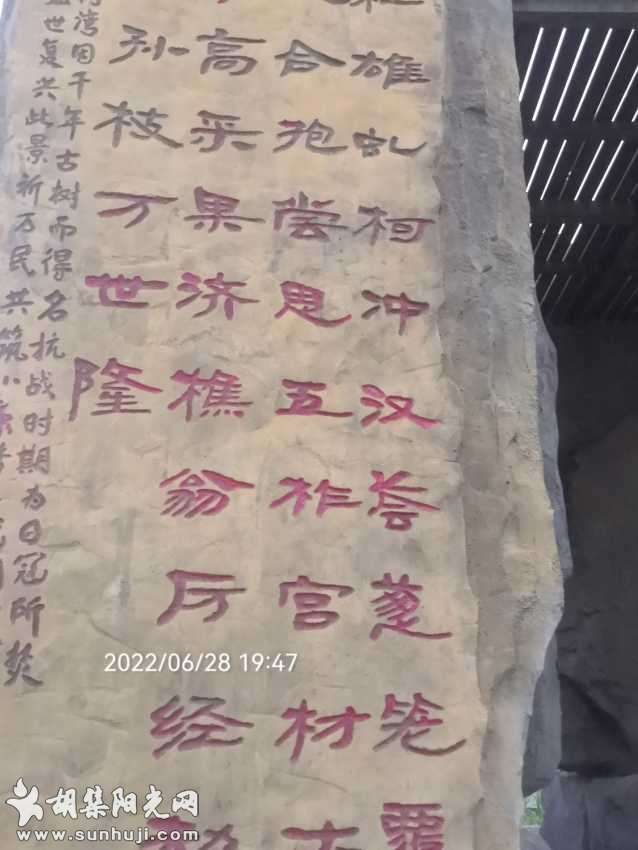 雄虬柯冲汉荟笼
合抱尝思五柞宫材
高采果济樵翁历经
孙枝万世隆
湾因千年古树而得名抗战时期为日寇所焚
世复兴此景祈万民共筑小康
2022/06/28 19:47
胡集阳光网
www.sunhuji.com